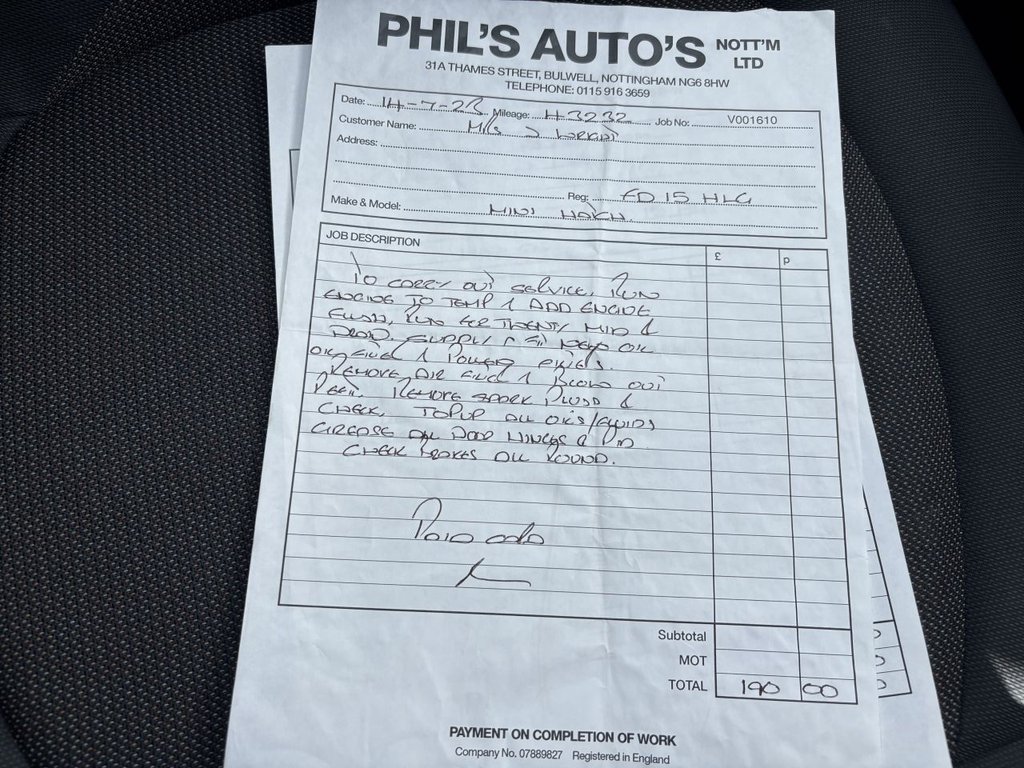 PHIL'S AUTO'S NOTT'M LTD
31A THAMES STREET, BULWELL, NOTTINGHAM NG6 8HW
TELEPHONE: 0115 916 3659
Date: 14-7-23 Mileage: 43232 Job No: V001610
Customer Name: J WRIGHT
Address:
Reg: FD15 HLG
Make & Model: MINI HATCH.
JOB DESCRIPTION £ p
TO CARRY OUT SERVICE, RUN
ENGINE TO TEMP & ADD ENGINE
FLUSH, RUN FOR TWENTY MIN &
DRAIN. SUPPLY & FIT NEW OIL
OIL FILTER & POLLEN FILTERS.
REMOVE AIR FILTER & BLOW OUT
REFIT. REMOVE SPARK PLUGS &
CHECK. TOP UP ALL OILS/FLUIDS
GREASE ALL DOOR HINGES &
CHECK BRAKES ALL ROUND.
PAID
Subtotal
MOT
TOTAL 190 00
PAYMENT ON COMPLETION OF WORK
Company No. 07889827 Registered in England